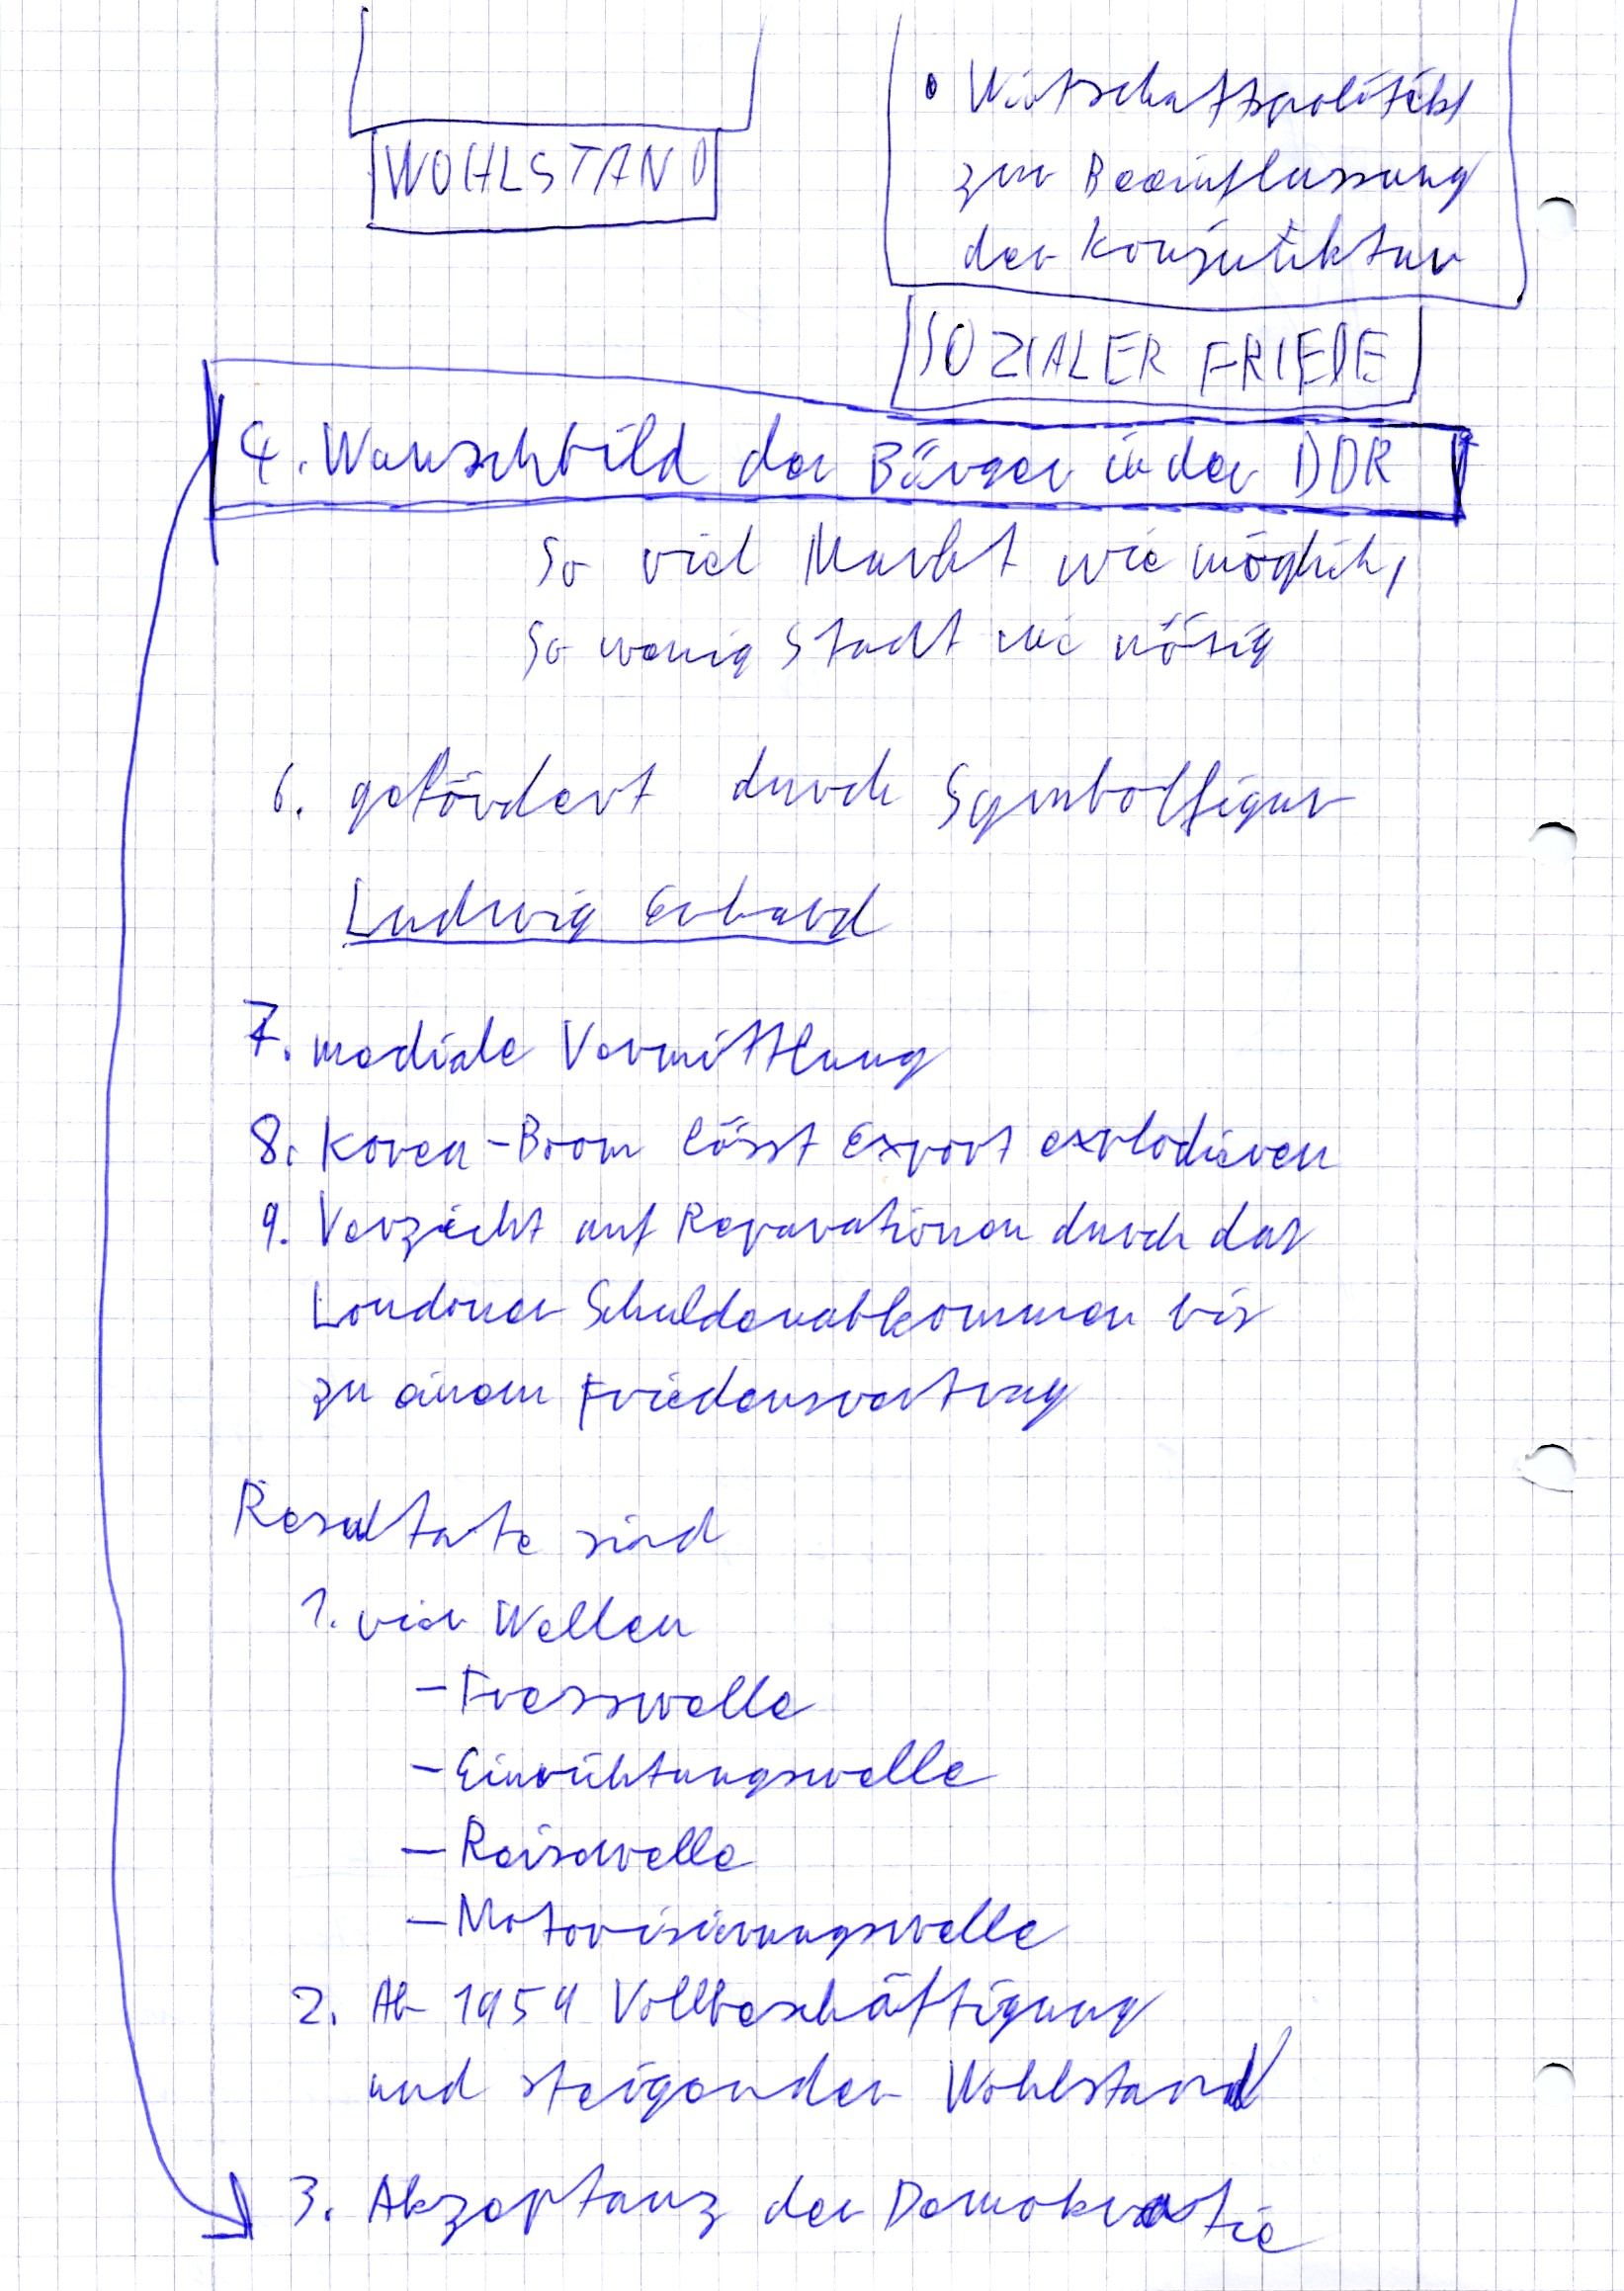 WOHLSTAND
• Wirtschaftspolitik
zur Beeinflussung
der Konjunktur
SOZIALER FRIEDE
4. Wunschbild der Bürger in der DDR
So viel Markt wie möglich,
so wenig Staat wie nötig
6. gefördert durch Symbolfigur
Ludwig Erhard
7. mediale Vermittlung
8. Korea-Boom lässt Export explodieren
9. Verzicht auf Reparationen durch das
Londoner Schuldenabkommen bis
zu einem Friedensvertrag
Resultate sind
1. vier Wellen
- Fresswelle
- Einrichtungswelle
- Reisewelle
- Motorisierungswelle
2. Ab 1959 Vollbeschäftigung
und steigender Wohlstand
3. Akzeptanz der Demokratie